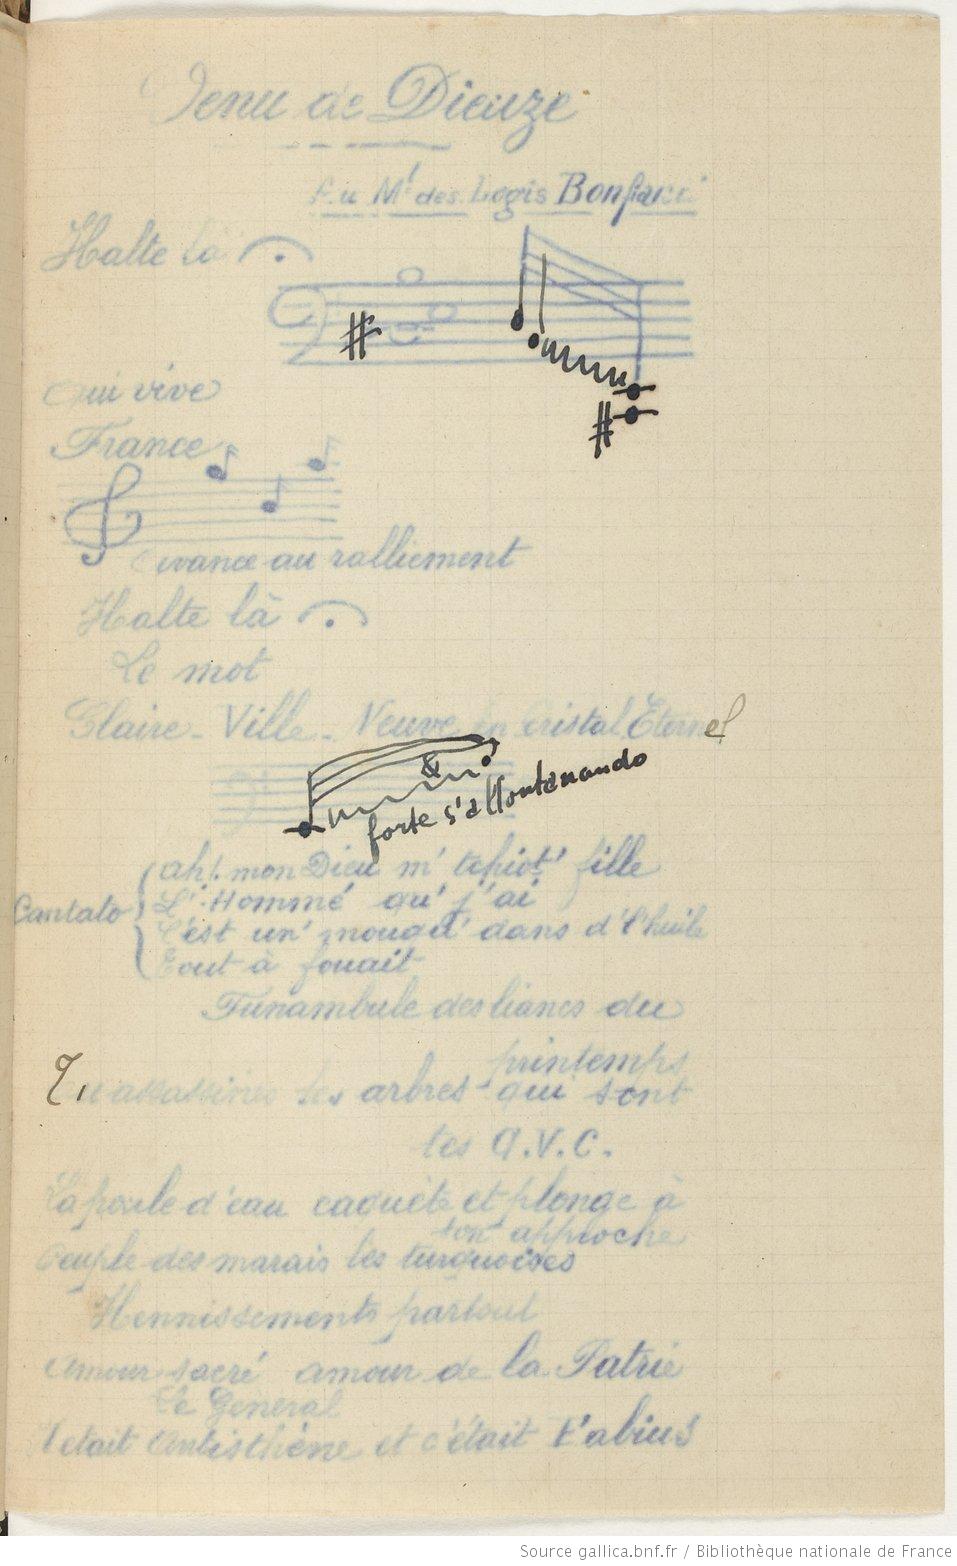 Venu de Dieuze
Au Mˡ des Logis Bonfanti
Halte là
Qui vive
France
Avance au ralliement
Halte là
Le mot
Claire-Ville-Neuve en Cristal Éternel
forte s'allontanando
Cantato
Ah! mon Dieu m' tchiot' fille
L'Hommé qu' j'ai
C'est un' mouqu' dans d' l'huile
Tout à fouait
Funambule des lianes du
printemps
Tu assassines les arbres qui sont
tes A.V.C.
La poule d'eau caquète et plonge à
ton approche
Peuple des marais les turquoises
Hennissements partout
Amour sacré amour de la Patrie
Le Général
C'était Antisthène et c'était Fabius
Source gallica.bnf.fr / Bibliothèque nationale de France